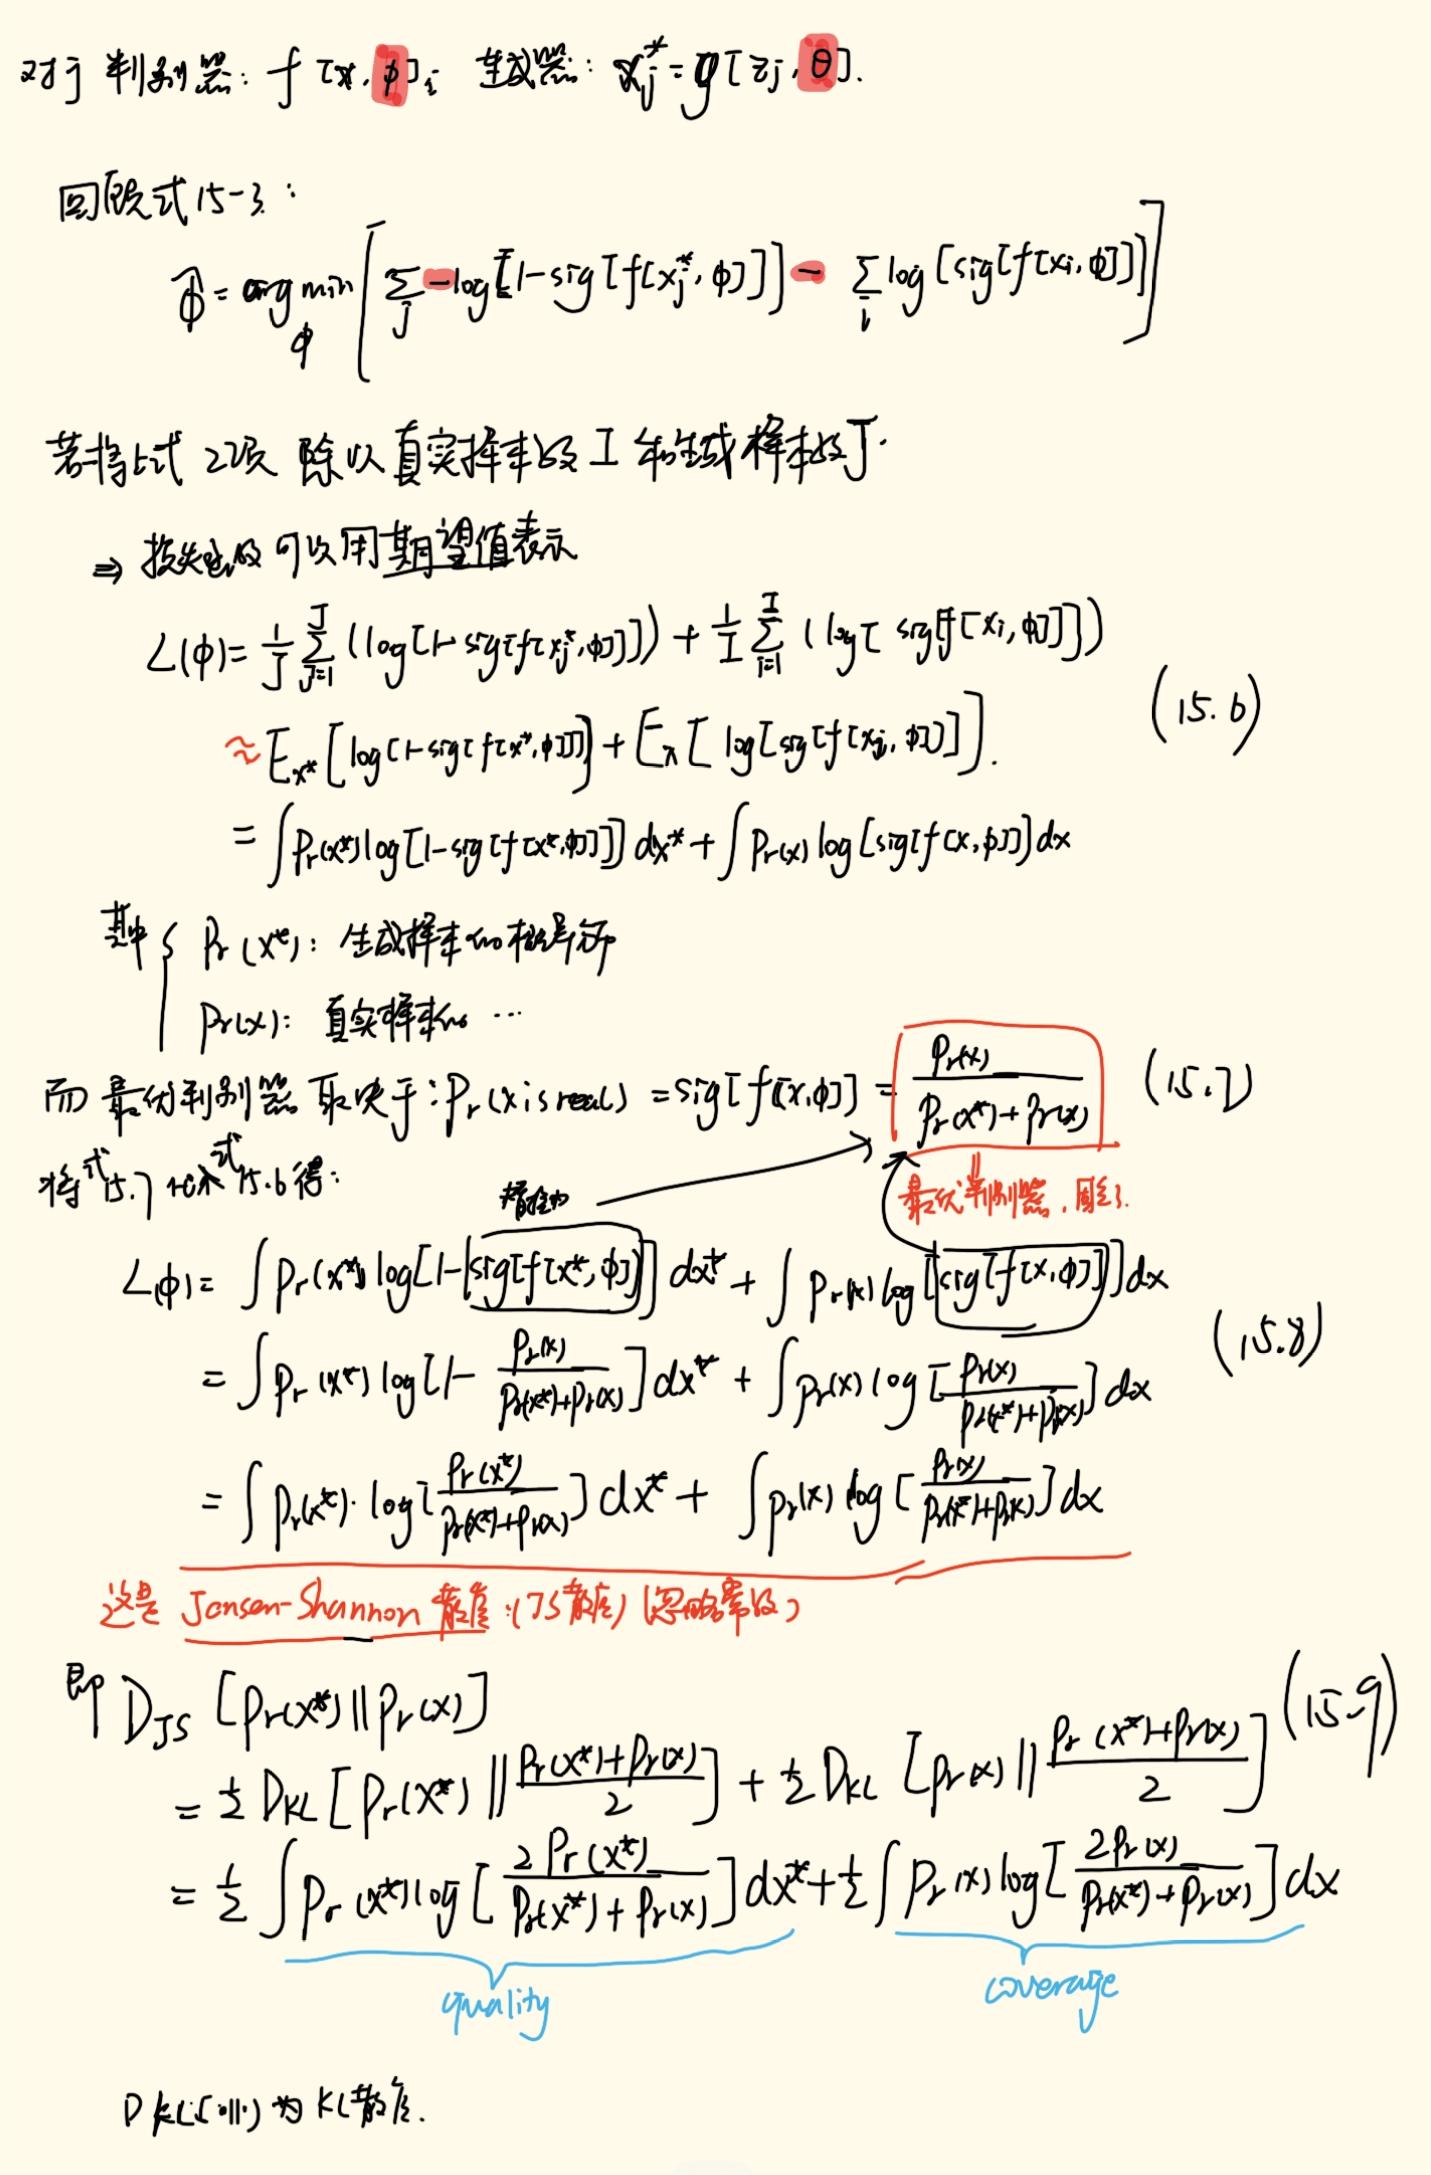 对于判别器: f[x, ϕ]; 生成器: x_j^* = g[z_j, θ].
回顾式15-3:
ϕ̂ = argmin_ϕ [ Σ_j -log[1-sig[f[x_j^*, ϕ]]] - Σ_i log[sig[f[x_i, ϕ]]] ]
若将上式2项 除以真实样本数I和生成样本数J.
⇒ 损失函数可以用期望值表示
L(ϕ) = 1/J Σ_{j=1}^J (log[1-sig[f[x_j^*, ϕ]]]) + 1/I Σ_{i=1}^I (log[sig[f[x_i, ϕ]]])
≈ E_{x*}[log[1-sig[f[x*, ϕ]]]] + E_x[log[sig[f[x_i, ϕ]]]]. (15.6)
= ∫Pr(x*) log[1-sig[f[x*, ϕ]]] dx* + ∫Pr(x) log[sig[f[x, ϕ]]] dx
其中 { Pr(x*): 生成样本的概率分布
Pr(x): 真实样本的 ...
而最优判别器取决于: Pr(x is real) = sig[f[x, ϕ]] = Pr(x) / (Pr(x*)+Pr(x)) (15.7)
将式15.7代入式15.6得:
替换为
最优判别器, 固定了.
L(ϕ) = ∫Pr(x*) log[1-sig[f[x*, ϕ]]] dx* + ∫Pr(x) log[sig[f[x, ϕ]]] dx
= ∫Pr(x*) log[1 - Pr(x)/(Pr(x*)+Pr(x))] dx* + ∫Pr(x) log[Pr(x)/(Pr(x*)+Pr(x))] dx (15.8)
= ∫Pr(x*)·log[Pr(x*)/(Pr(x*)+Pr(x))] dx* + ∫Pr(x) log[Pr(x)/(Pr(x*)+Pr(x))] dx
这是 Jensen-Shannon 散度: (JS散度) (忽略常数)
即 D_JS [Pr(x*) || Pr(x)] (15.9)
= ½ D_KL [Pr(x*) || (Pr(x*)+Pr(x))/2] + ½ D_KL [Pr(x) || (Pr(x*)+Pr(x))/2]
= ½ ∫Pr(x*) log[2Pr(x*)/(Pr(x*)+Pr(x))] dx* + ½ ∫Pr(x) log[2Pr(x)/(Pr(x*)+Pr(x))] dx
quality coverage
D_KL[·||·] 为KL散度.